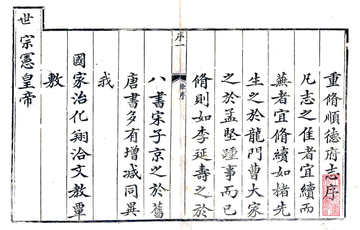 重脩順德府志序
凡志之佳者宜續而
蕪者宜脩續如褚先
生之於龍門曹大家
之於孟堅踵事而已
脩則如李延壽之於
序一
八書宋子京之於舊
唐書多有增減同異
我
國家治化翔洽文教覃
敷
世宗憲皇帝